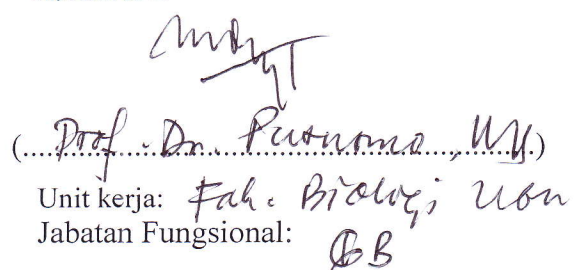 (Prof. Dr. Purnomo, M.S.)
Unit kerja: Fak. Biologi UGM
Jabatan Fungsional:
GB